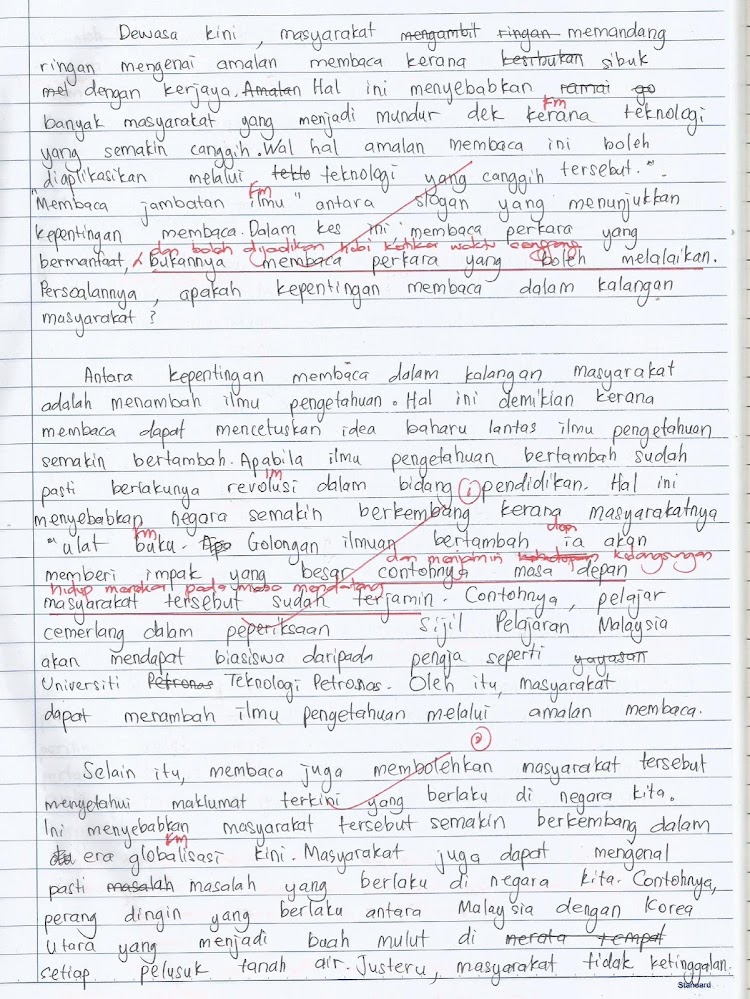 Dewasa kini, masyarakat mengambit ringan memandang
ringan mengenai amalan membaca kerana kesibukan sibuk
mel dengan kerjaya. Amalan Hal ini menyebabkan ramai go
Fm
banyak masyarakat yang menjadi mundur dek kerana teknologi
yang semakin canggih. Wal hal amalan membaca ini boleh
diaplikasikan melalui tekto teknologi yang canggih tersebut. "
Fm
"Membaca jambatan ilmu" antara slogan yang menunjukkan
kepentingan membaca. Dalam kes ini, membaca perkara yang
dan boleh dijadikan hobi ketika waktu senggang
bermanfaat, bukannya membaca perkara yang boleh melalaikan.
Persoalannya, apakah kepentingan membaca dalam kalangan
masyarakat?
Antara kepentingan membaca dalam kalangan masyarakat
adalah menambah ilmu pengetahuan. Hal ini demikian kerana
membaca dapat mencetuskan idea baharu lantas ilmu pengetahuan
semakin bertambah. Apabila ilmu pengetahuan bertambah sudah
Im
pasti berlakunya revolusi dalam bidang pendidikan. Hal ini
menyebabkan negara semakin berkembang kerana masyarakatnya
Fm dan
"ulat buku. Golongan ilmuan bertambah ia akan
dan menjamin kelangsungan
memberi impak yang besar contohnya masa depan
hidup mereka pada masa mendatang
masyarakat tersebut sudah terjamin. Contohnya, pelajar
cemerlang dalam peperiksaan Sijil Pelajaran Malaysia
akan mendapat biasiswa daripada penaja seperti yayasan
Universiti Petronas Teknologi Petronas. Oleh itu, masyarakat
dapat menambah ilmu pengetahuan melalui amalan membaca.
2
Selain itu, membaca juga membolehkan masyarakat tersebut
mengetahui maklumat terkini yang berlaku di negara kita.
Ini menyebabkan masyarakat tersebut semakin berkembang dalam
Fm
era globalisasi kini. Masyarakat juga dapat mengenal
pasti masalah masalah yang berlaku di negara kita. Contohnya,
perang dingin yang berlaku antara Malaysia dengan Korea
Utara yang menjadi buah mulut di merata tempat
setiap pelusuk tanah air. Justeru, masyarakat tidak ketinggalan.
Standard